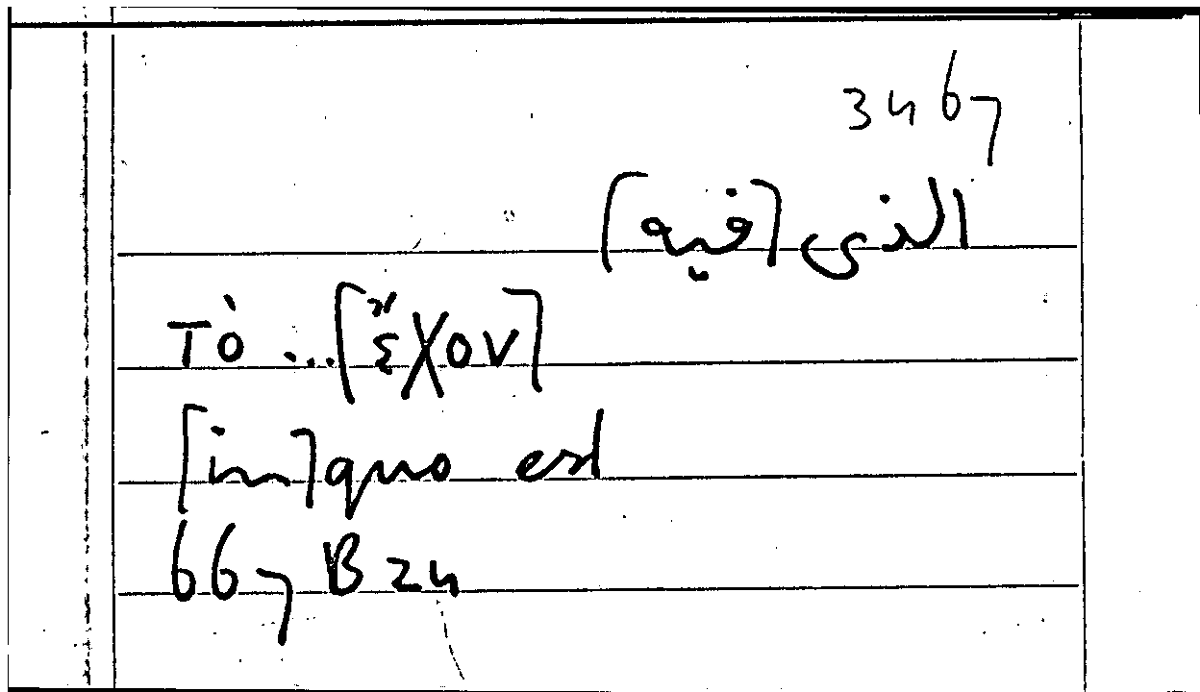 3467
الذى [فيه]
Τὸ ...[ἔχον]
[in] quo est
667 B 24